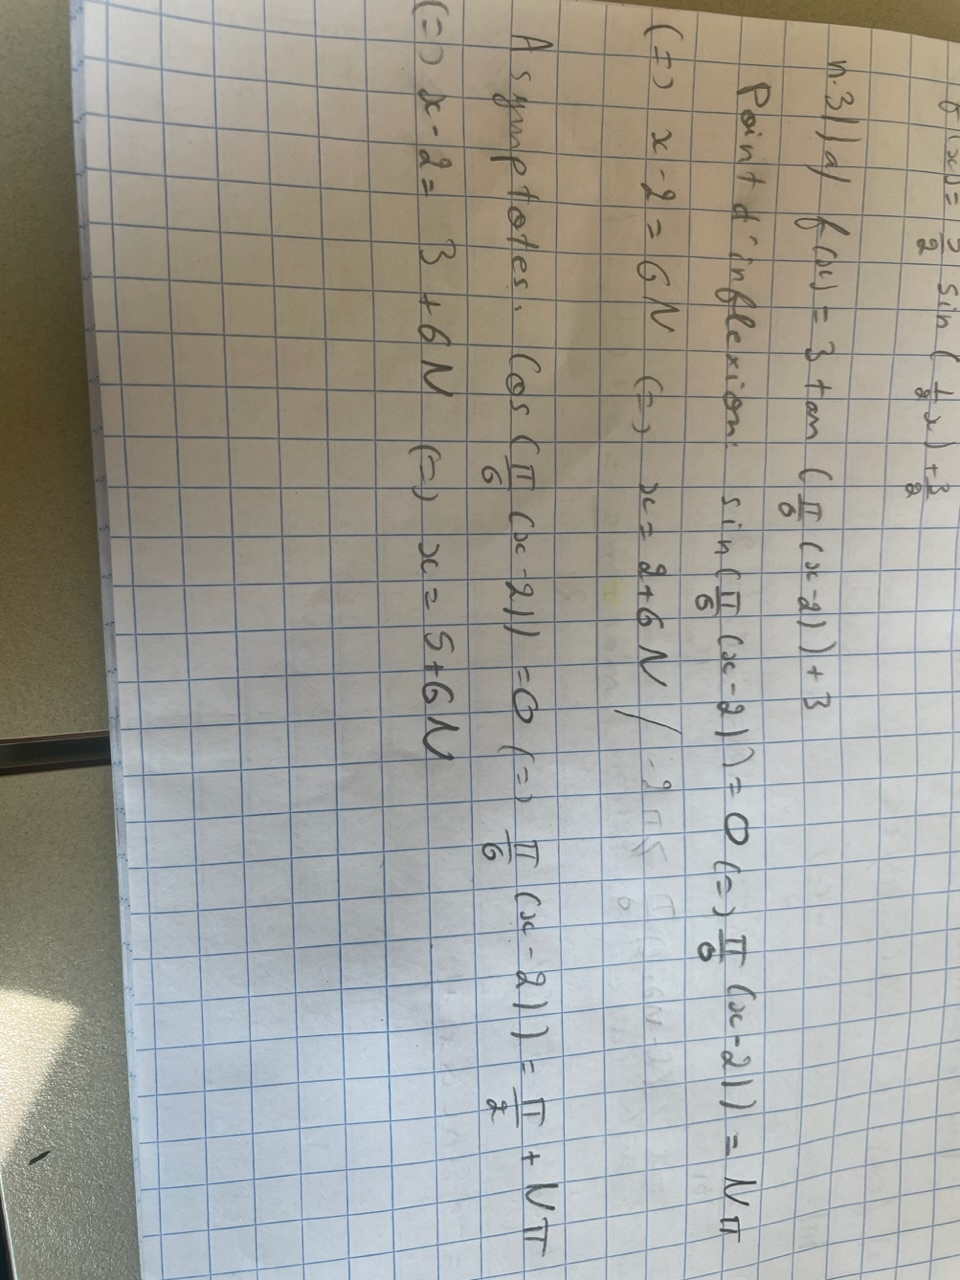 f(x) = 3/2 sin (1/2 x) + 3/2
n.3) a) f(x) = 3 tan (π/6 (x-2)) + 3
Point d'inflexion: sin (π/6 (x-2)) = 0 (=) π/6 (x-2)) = Nπ
(=) x-2 = 6N (=) x = 2+6N /
Asymptotes. Cos (π/6 (x-2)) = 0 (=) π/6 (x-2)) = π/2 + Nπ
(=) x-2 = 3 + 6N (=) x = 5+6N